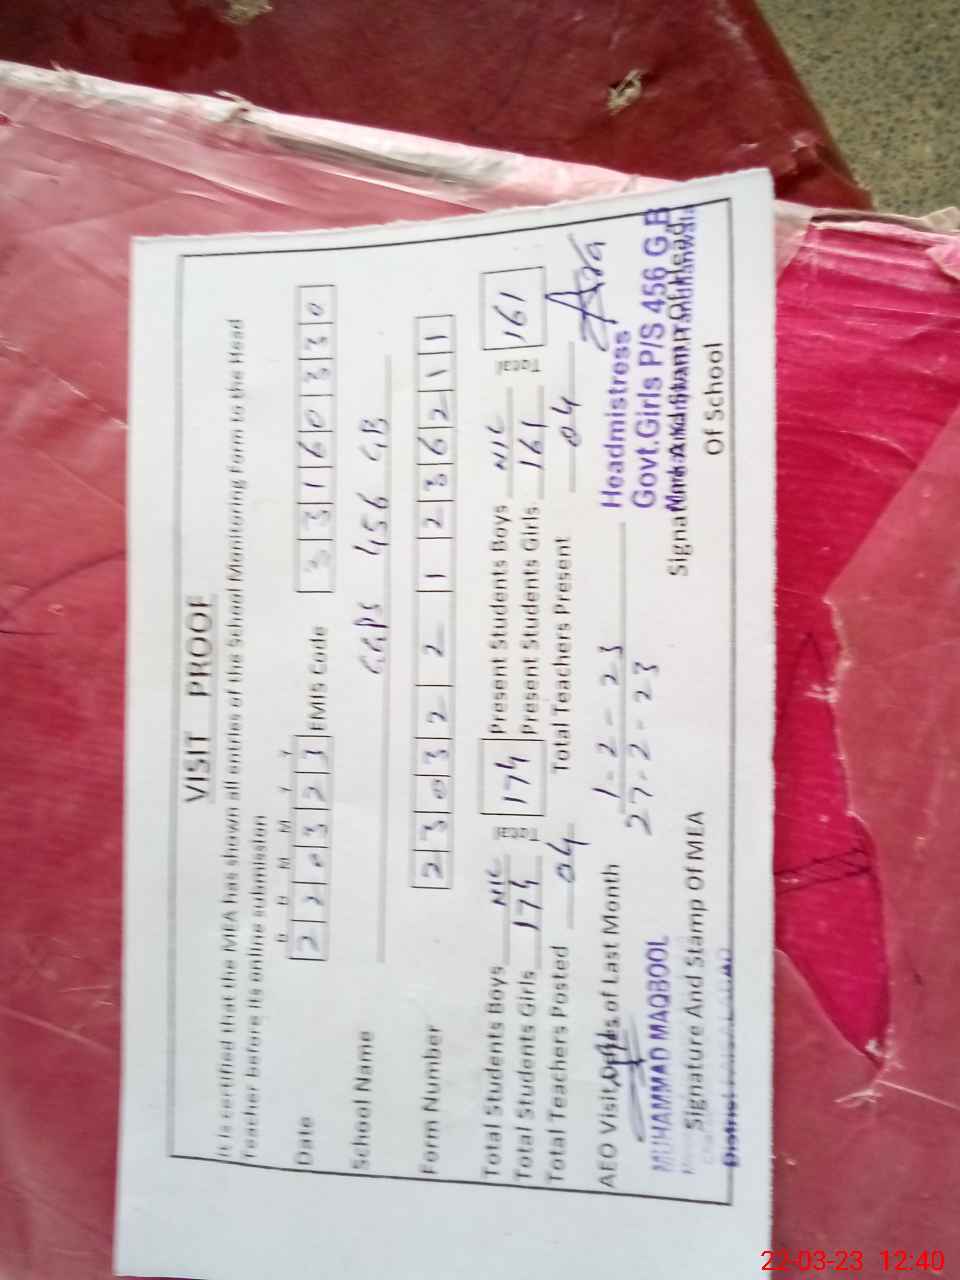 VISIT PROOF
It is certified that the MEA has shown all entries of the School Monitoring Form to the Head
Teacher before its online submission
D D M M Y Y
Date 2 2 0 3 2 3 EMIS Code 3 3 1 6 0 3 3 0
School Name GGPS 456 GB
Form Number 2 3 0 3 2 2 1 2 3 6 2 1 1
Total Students Boys NIL Present Students Boys NIL
Total 174 Total 161
Total Students Girls 174 Present Students Girls 161
Total Teachers Posted 04 Total Teachers Present 04
AEO Visit Dates of Last Month 1-2-23
27-2-23
Headmistress
Govt.Girls P/S 456 G.B
MUHAMMAD MAQBOOL
Signature And Stamp Of MEA
Signature And Stamp Of Head
Of School
District FAISALABAD
22-03-23 12:40